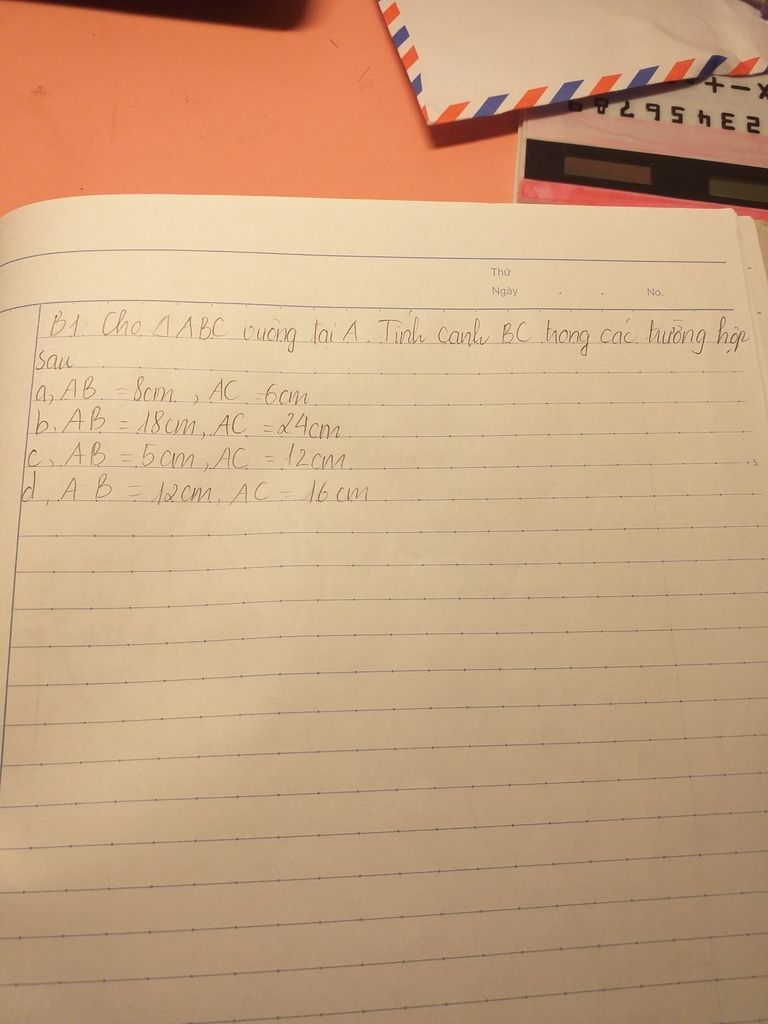 x-+
23456789
Thứ
Ngày . . No.
B1. Cho △ABC vuông tại A. Tính cạnh BC trong các trường hợp
sau
a, AB = 8cm, AC = 6cm
b, AB = 18cm, AC = 24cm
c, AB = 5cm, AC = 12cm
5
d, AB = 12cm, AC = 16cm